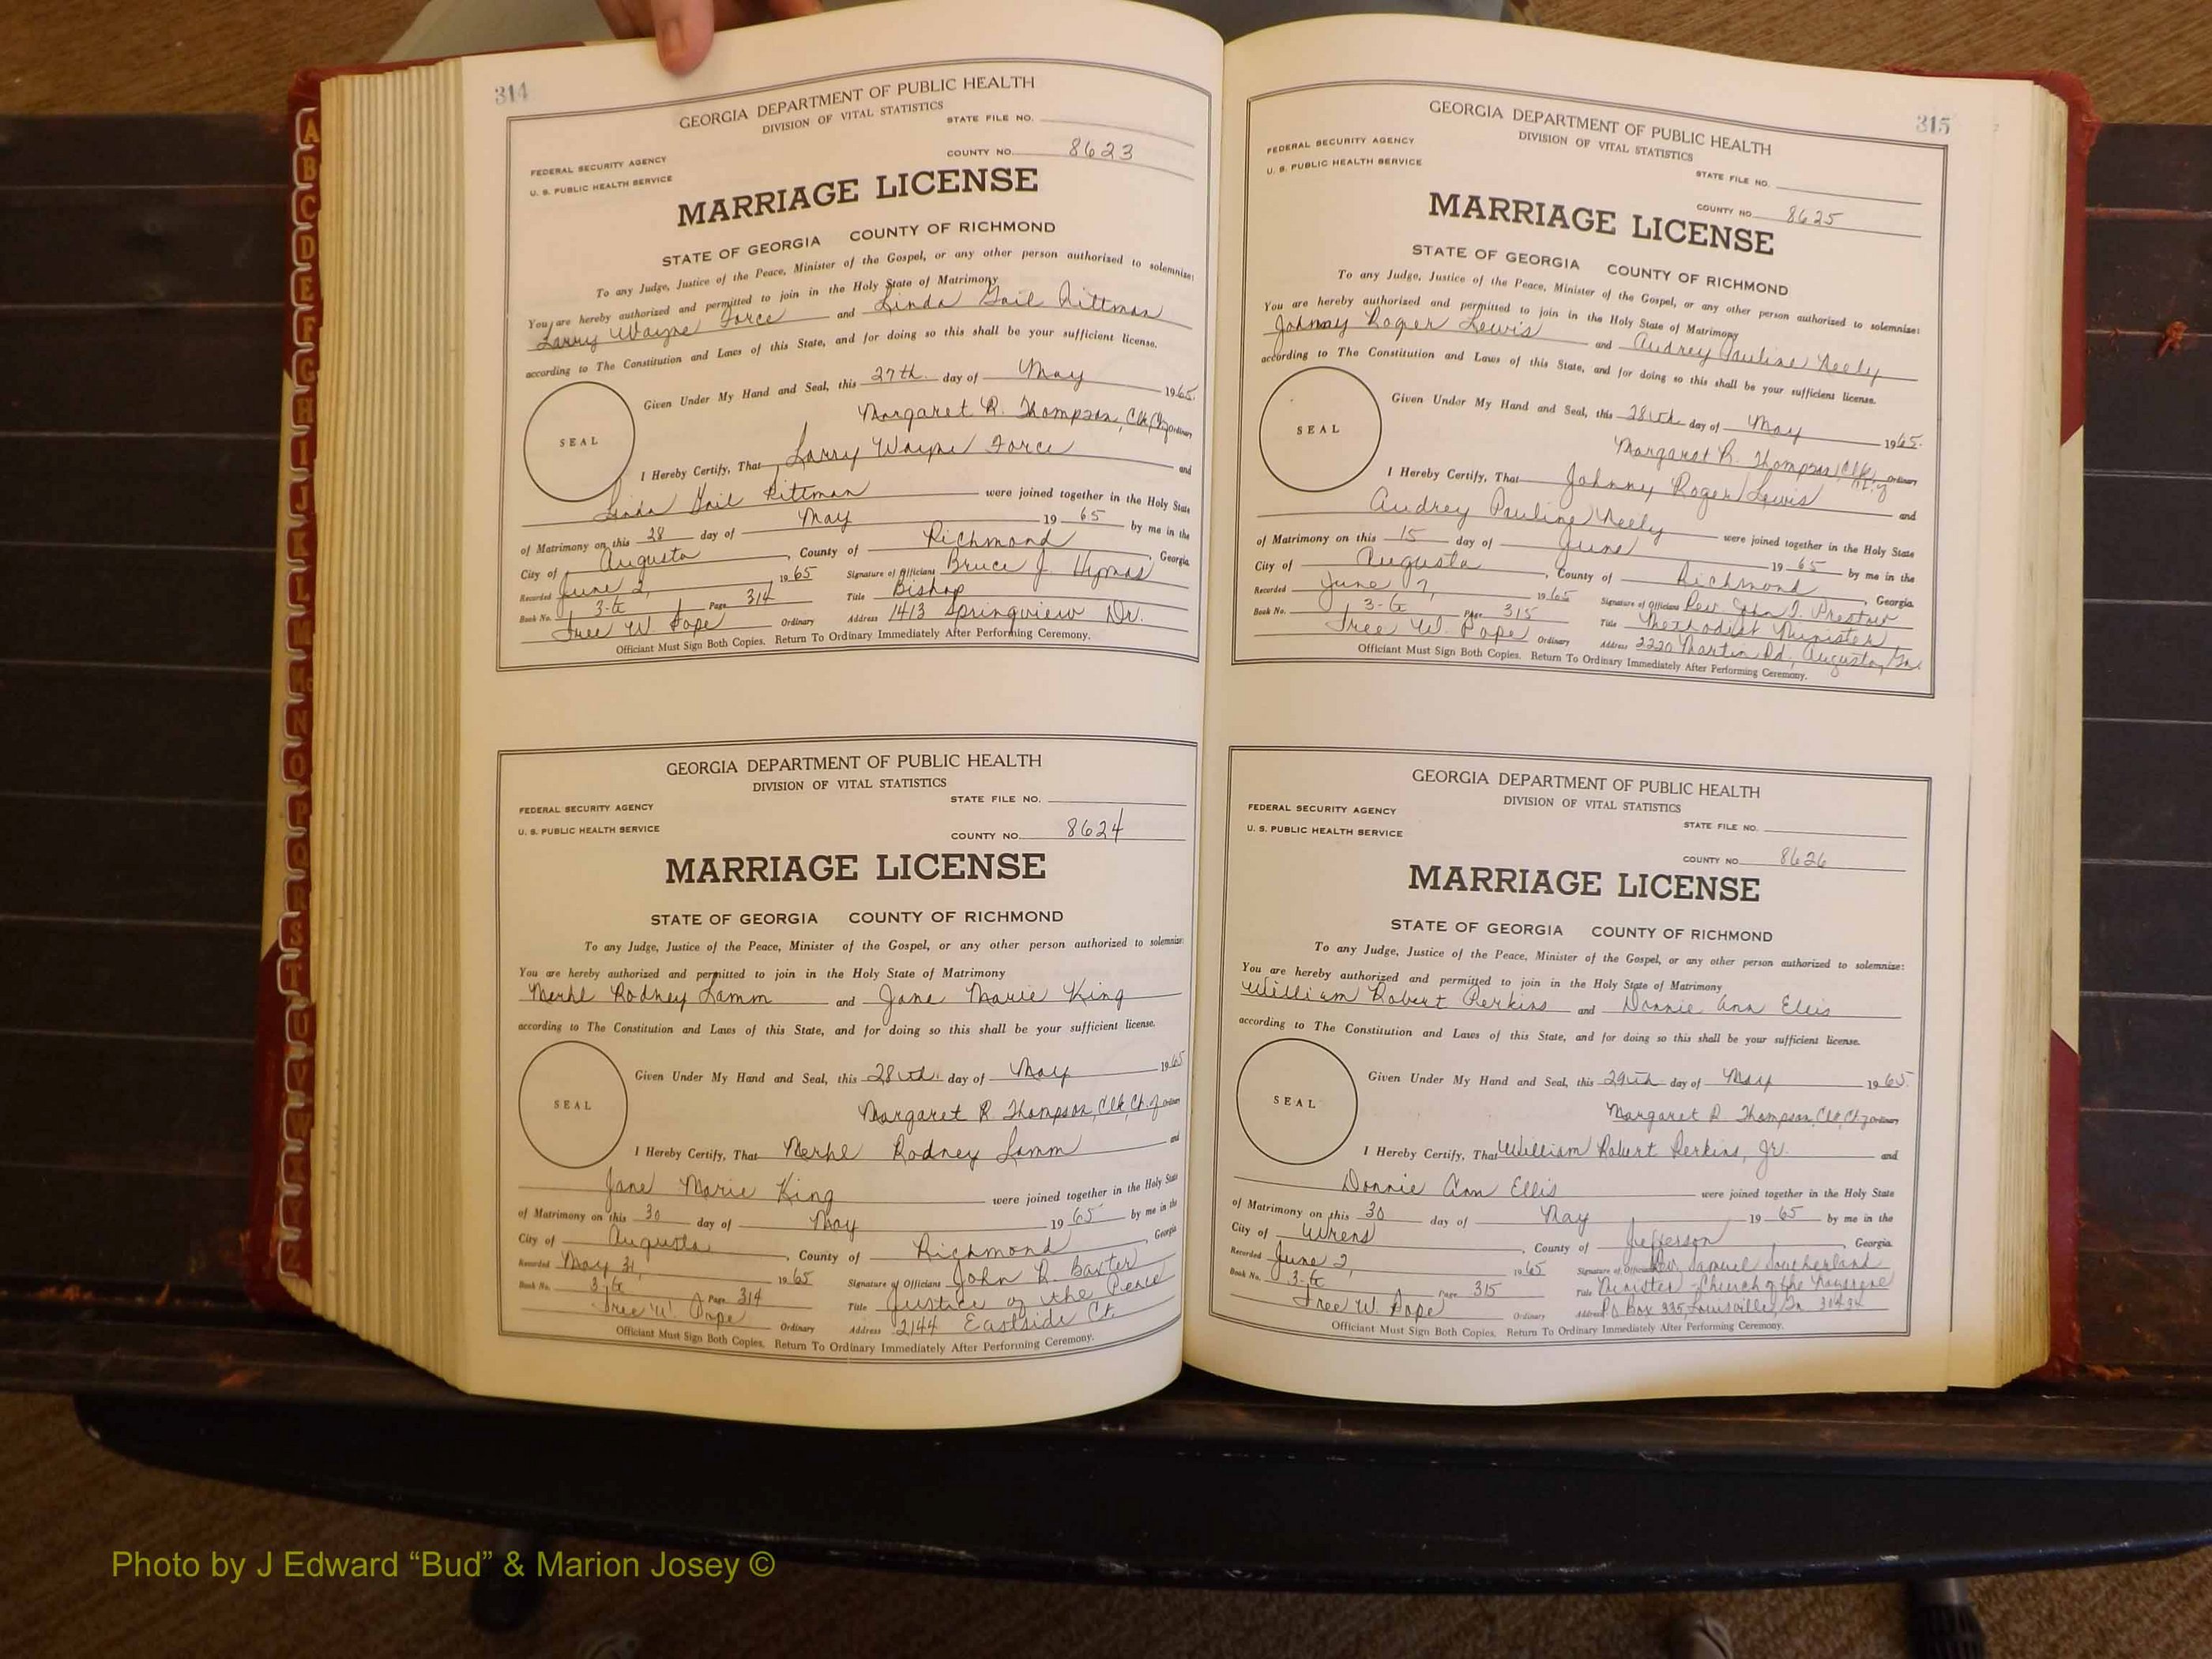 314
GEORGIA DEPARTMENT OF PUBLIC HEALTH
DIVISION OF VITAL STATISTICS
STATE FILE NO.
FEDERAL SECURITY AGENCY
COUNTY NO. 8623
U. S. PUBLIC HEALTH SERVICE
MARRIAGE LICENSE
STATE OF GEORGIA COUNTY OF RICHMOND
To any Judge, Justice of the Peace, Minister of the Gospel, or any other person authorized to solemnize:
You are hereby authorized and permitted to join in the Holy State of Matrimony
Larry Wayne Force and Linda Gail Pittman
according to The Constitution and Laws of this State, and for doing so this shall be your sufficient license.
Given Under My Hand and Seal, this 27th. day of May 1965.
SEAL
Margaret R. Thompson, Clk, Ordinary
I Hereby Certify, That Larry Wayne Force and
Linda Gail Pittman were joined together in the Holy State
of Matrimony on this 28 day of May 19 65 by me in the
City of Augusta, County of Richmond, Georgia
Recorded June 2, 1965 Signature of Officiant Bruce J. Hymas
Book No. 3-G Page 314 Title Bishop
Free W. Pope Ordinary Address 1413 Springview Dr.
Officiant Must Sign Both Copies. Return To Ordinary Immediately After Performing Ceremony.
GEORGIA DEPARTMENT OF PUBLIC HEALTH
DIVISION OF VITAL STATISTICS
STATE FILE NO.
FEDERAL SECURITY AGENCY
U. S. PUBLIC HEALTH SERVICE
COUNTY NO. 8624
MARRIAGE LICENSE
STATE OF GEORGIA COUNTY OF RICHMOND
To any Judge, Justice of the Peace, Minister of the Gospel, or any other person authorized to solemnize:
You are hereby authorized and permitted to join in the Holy State of Matrimony
Merhl Rodney Lamm and Jane Marie King
according to The Constitution and Laws of this State, and for doing so this shall be your sufficient license.
Given Under My Hand and Seal, this 28th. day of May 1965
SEAL
Margaret R Thompson, Clk, Ct. Ordinary
I Hereby Certify, That Merhl Rodney Lamm and
Jane Marie King were joined together in the Holy State
of Matrimony on this 30 day of May 19 65 by me in the
City of Augusta, County of Richmond, Georgia
Recorded May 31, 1965 Signature of Officiant John R. Baxter
Book No. 3-G Page 314 Title Justice of the Peace
Free W. Pope Ordinary Address 2144 Eastside Ct.
Officiant Must Sign Both Copies. Return To Ordinary Immediately After Performing Ceremony.
315
GEORGIA DEPARTMENT OF PUBLIC HEALTH
DIVISION OF VITAL STATISTICS
FEDERAL SECURITY AGENCY
U. S. PUBLIC HEALTH SERVICE
STATE FILE NO.
COUNTY NO. 8625
MARRIAGE LICENSE
STATE OF GEORGIA COUNTY OF RICHMOND
To any Judge, Justice of the Peace, Minister of the Gospel, or any other person authorized to solemnize:
You are hereby authorized and permitted to join in the Holy State of Matrimony
Johnny Roger Lewis and Audrey Pauline Neely
according to The Constitution and Laws of this State, and for doing so this shall be your sufficient license.
Given Under My Hand and Seal, this 28th day of May 1965.
SEAL
Margaret R. Thompson, Clk, Ordinary
I Hereby Certify, That Johnny Roger Lewis and
Audrey Pauline Neely were joined together in the Holy State
of Matrimony on this 15 day of June 19 65 by me in the
City of Augusta, County of Richmond, Georgia.
Recorded June 7, 1965 Signature of Officiant Rev. John
Book No. 3-G Page 315 Title Methodist Minister
Free W. Pope Ordinary Address 2220 Martin Rd, Augusta, Ga
Officiant Must Sign Both Copies. Return To Ordinary Immediately After Performing Ceremony.
GEORGIA DEPARTMENT OF PUBLIC HEALTH
DIVISION OF VITAL STATISTICS
FEDERAL SECURITY AGENCY
STATE FILE NO.
U. S. PUBLIC HEALTH SERVICE
COUNTY NO. 8626
MARRIAGE LICENSE
STATE OF GEORGIA COUNTY OF RICHMOND
To any Judge, Justice of the Peace, Minister of the Gospel, or any other person authorized to solemnize:
You are hereby authorized and permitted to join in the Holy State of Matrimony
William Robert Perkins and Donnie Ann Ellis
according to The Constitution and Laws of this State, and for doing so this shall be your sufficient license.
Given Under My Hand and Seal, this 29th day of May 1965.
SEAL
Margaret R. Thompson, Clk, Ct Ordinary
I Hereby Certify, That William Robert Perkins, Jr. and
Donnie Ann Ellis were joined together in the Holy State
of Matrimony on this 30 day of May 19 65 by me in the
City of Wrens, County of Jefferson, Georgia.
Recorded June 2, 1965 Signature of Officiant Rev. Samuel Southerland
Book No. 3-G Page 315 Title Minister - Church of the Nazarene
Free W. Pope Ordinary Address P.O. Box 335, Louisville, Ga 30434
Officiant Must Sign Both Copies. Return To Ordinary Immediately After Performing Ceremony.
A
B
C
D
E
F
G
H
I
J
K
L
M
Mc
N
O
P
Q
R
S
T
U
V
W
X
Y
Z
Photo by J Edward “Bud” & Marion Josey ©